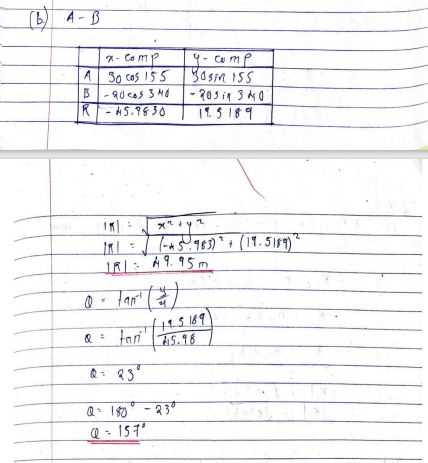 (b) A - B
x-comp y-comp
A 30 cos 155 30 sin 155
B -20 cos 340 -20 sin 340
R -45.9830 19.5189
|R| = √x² + y²
|R| = √(-45.983)² + (19.5189)²
|R| = 49.95 m
Q = tan⁻¹ (y/x)
Q = tan⁻¹ (19.5189/45.98)
Q = 23°
Q = 180° - 23°
Q = 157°